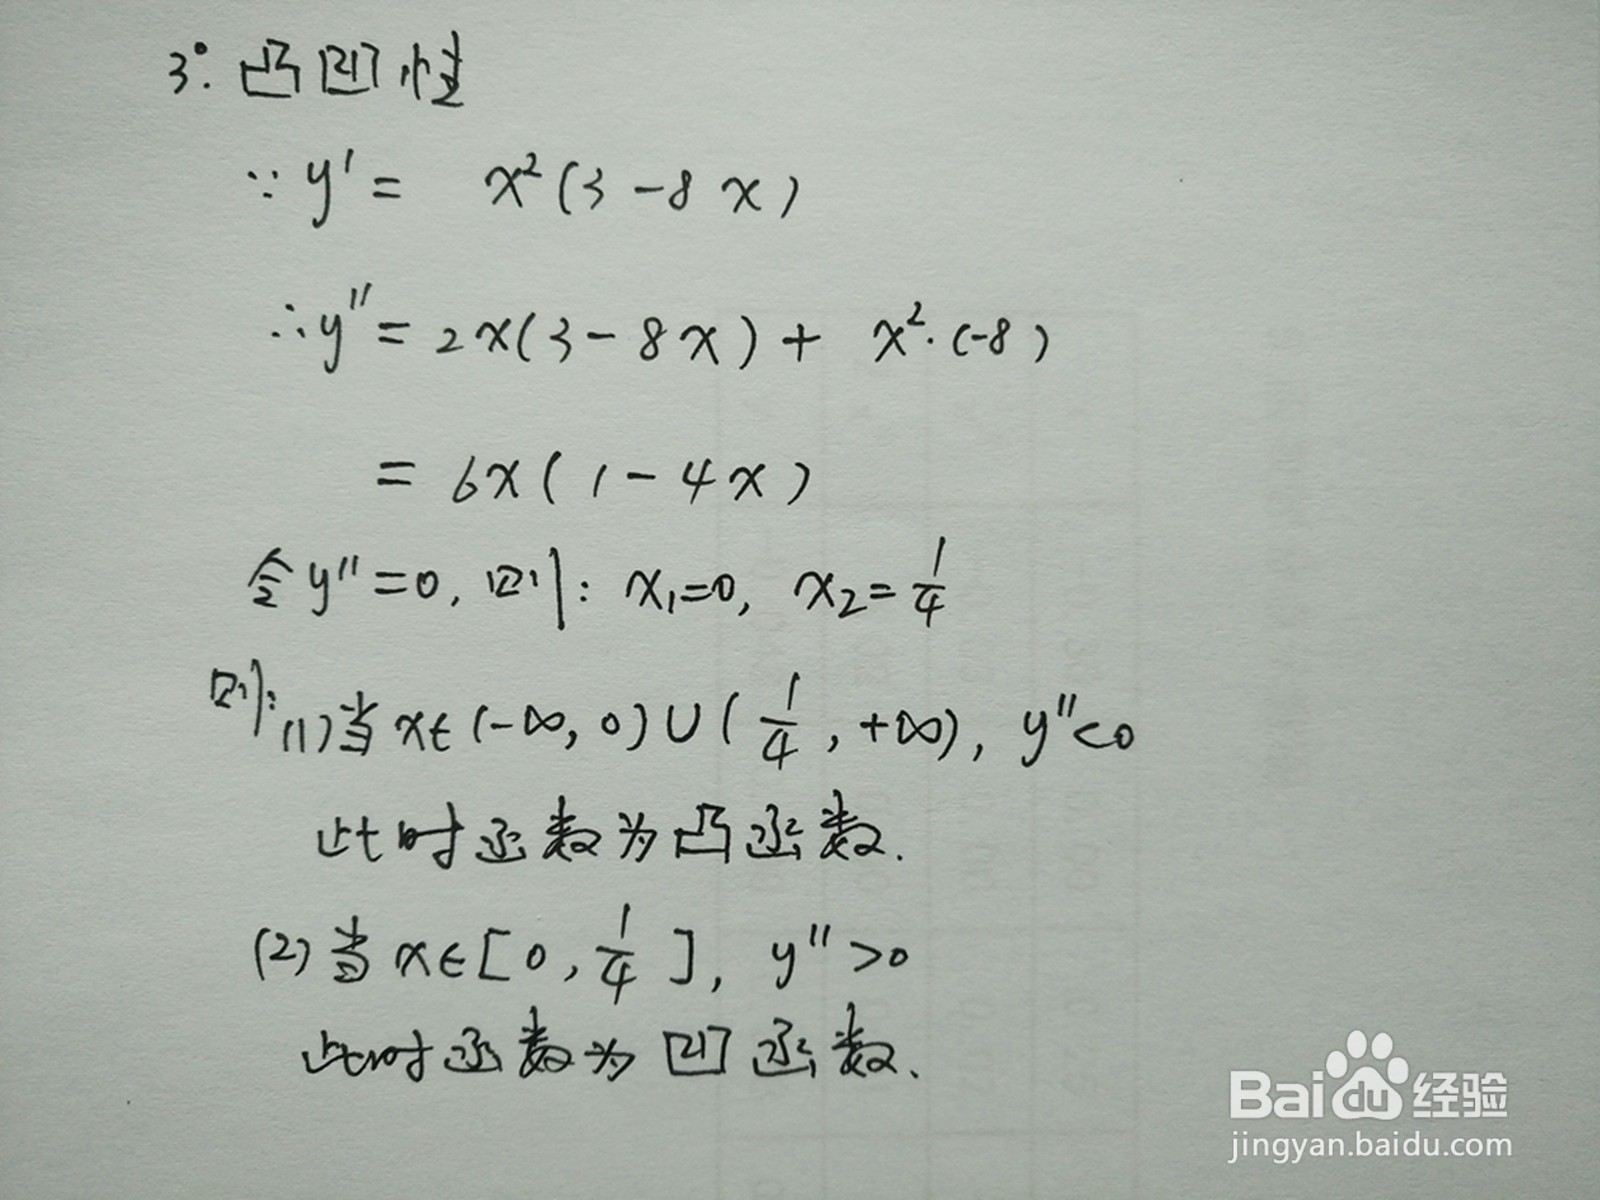 3°. 凸凹性
∵ y' = x²(3-8x)
∴ y'' = 2x(3-8x) + x²·(-8)
= 6x(1-4x)
令 y''=0, 则: x₁=0, x₂=1/4
则: (1) 当 x∈(-∞, 0)∪(1/4, +∞), y''<0
此时函数为凸函数.
(2) 当 x∈[0, 1/4], y''>0
此时函数为凹函数.
Baidu经验
jingyan.baidu.com